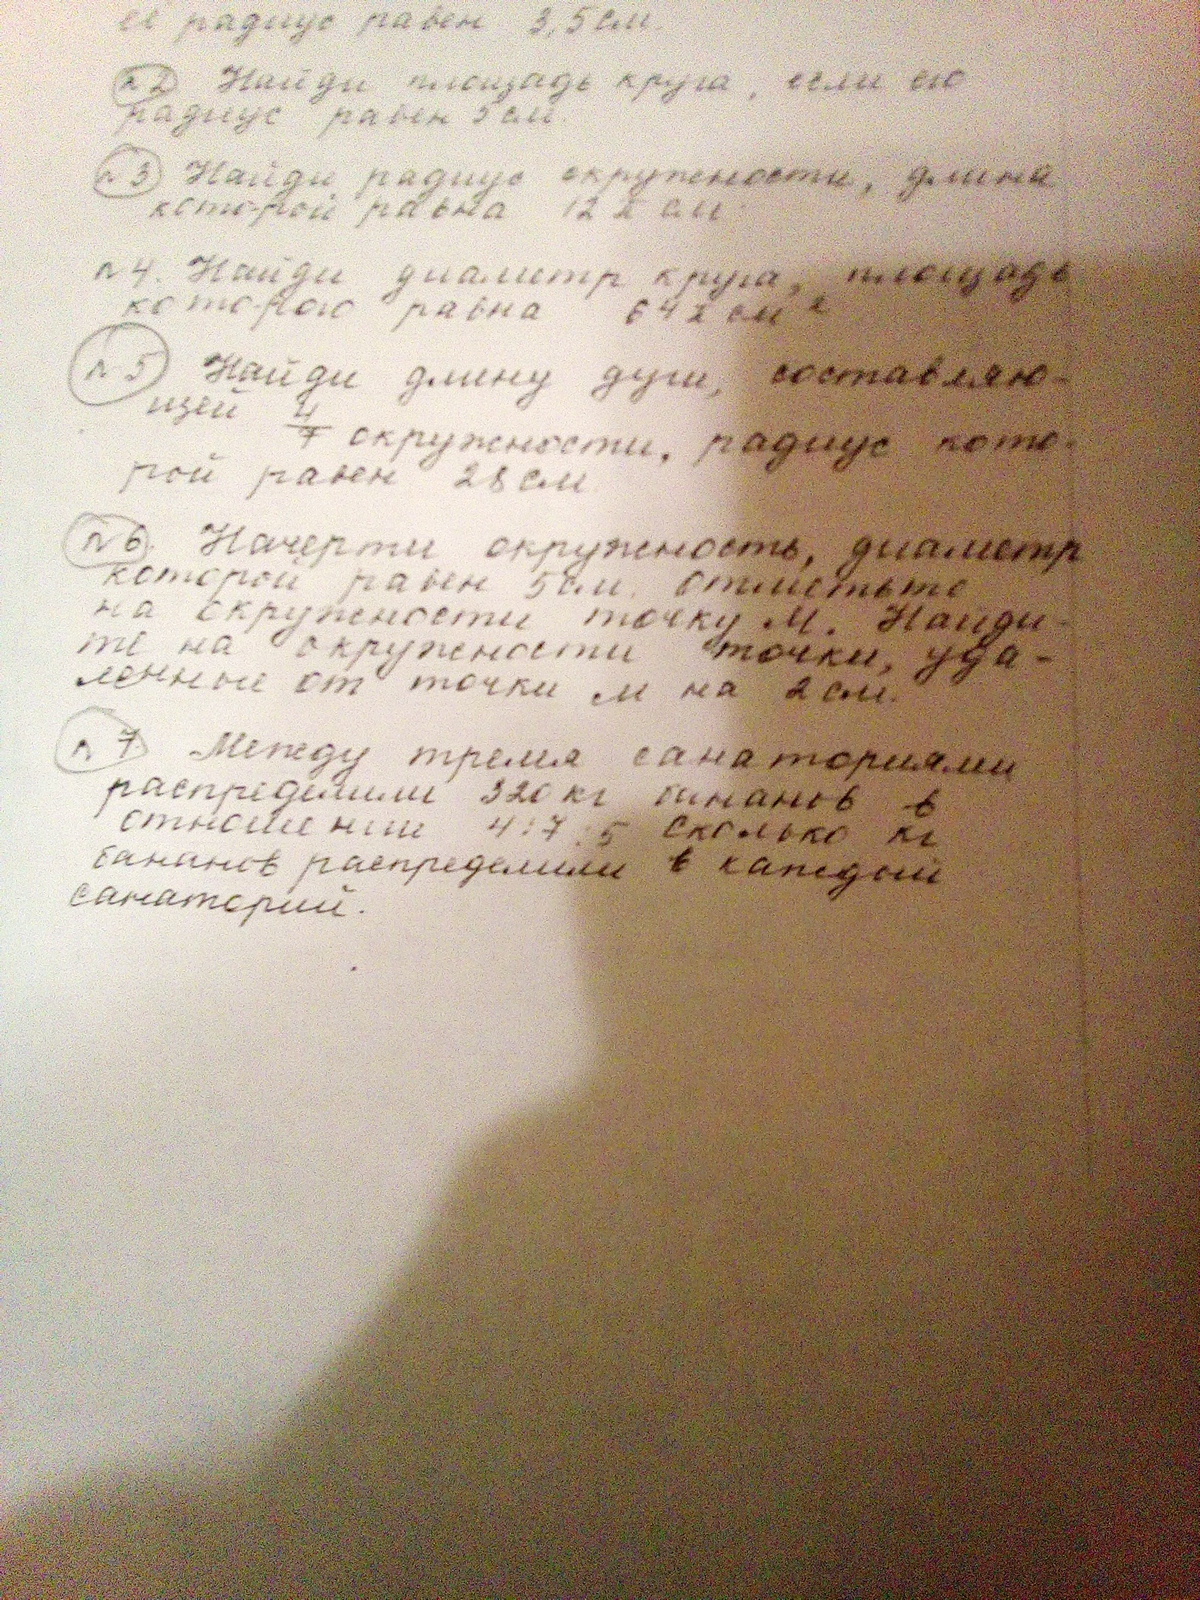 её радиус равен 3,5 см.
№2 Найди площадь круга, если его
радиус равен 5 см.
№3 Найди радиус окружности, длина
которой равна 12π см
№4. Найди диаметр круга, площадь
которого равна 64π см²
№5 Найди длину дуги, составляю-
щей 4/7 окружности, радиус кото-
рой равен 28 см.
№6. Начерти окружность, диаметр
которой равен 5 см. отметьте
на окружности точку М. Найди-
те на окружности точки, уда-
лённые от точки М на 2 см.
№7. Между тремя санаториями
распределили 320 кг бананов в
отношении 4:7:5 сколько кг
бананов распределили в каждый
санаторий.